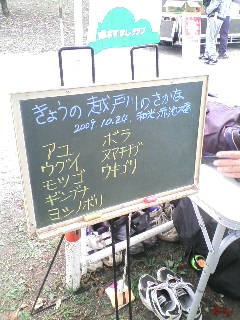 きょうの越戸川のさかな
2009.10.24.
アユ
ウグイ
モツゴ
ギンブナ
ヨシノボリ
ボラ
スマチチブ
ウキゴリ